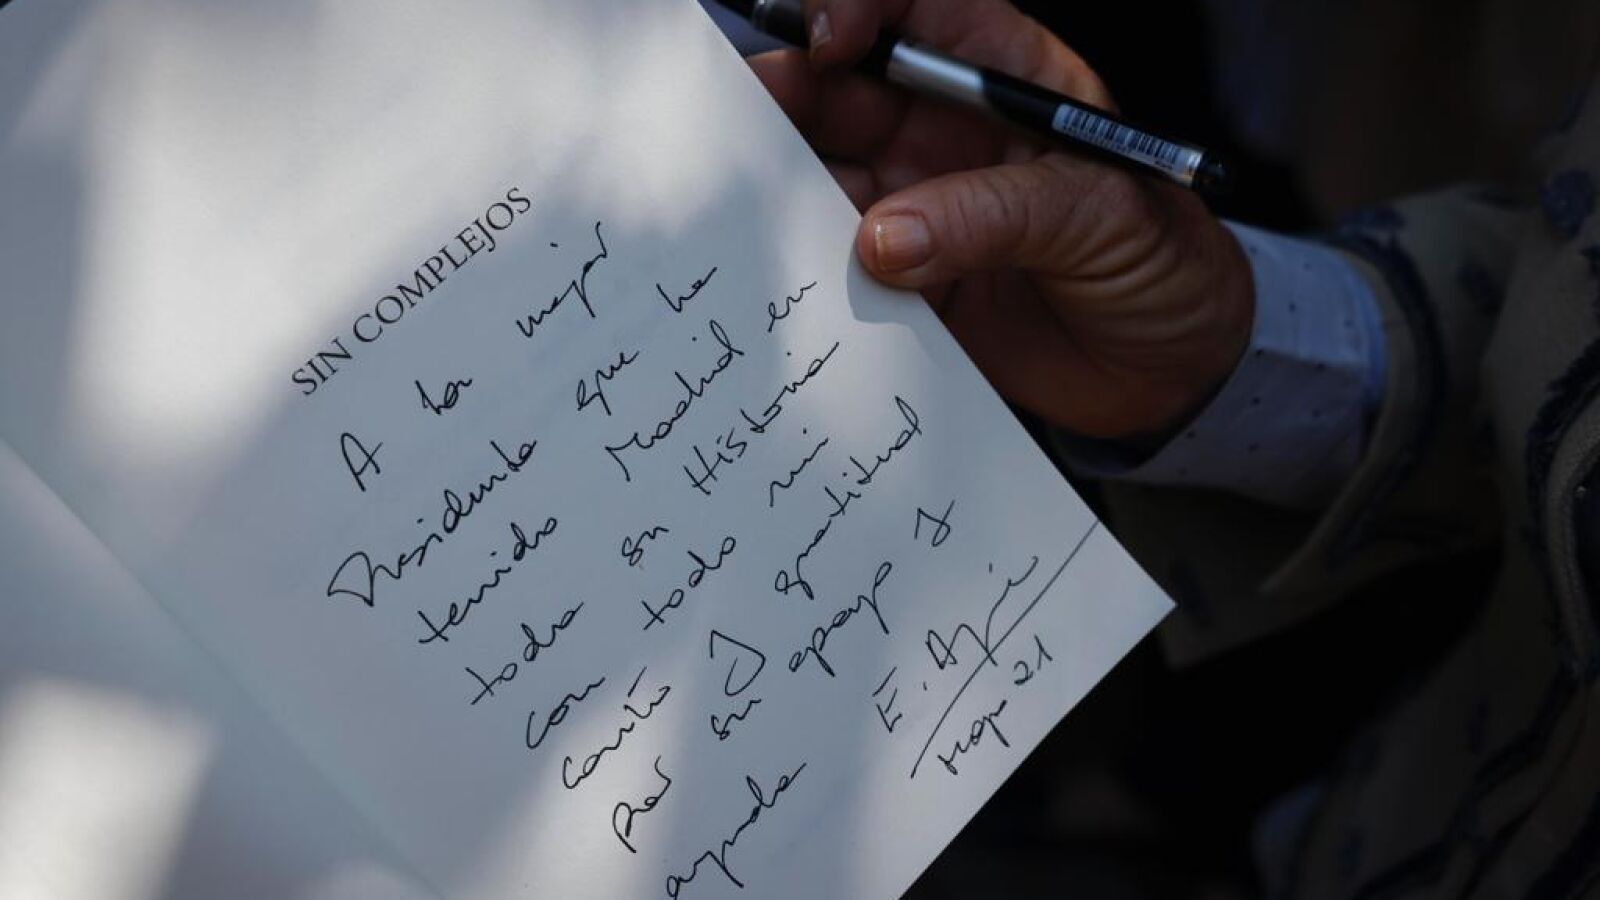 SIN COMPLEJOS
A la mejor
Presidenta que ha
tenido Madrid en
toda su Historia
con todo mi
cariño y gratitud
por su apoyo y
ayuda
E. Aguirre
Mayo-21